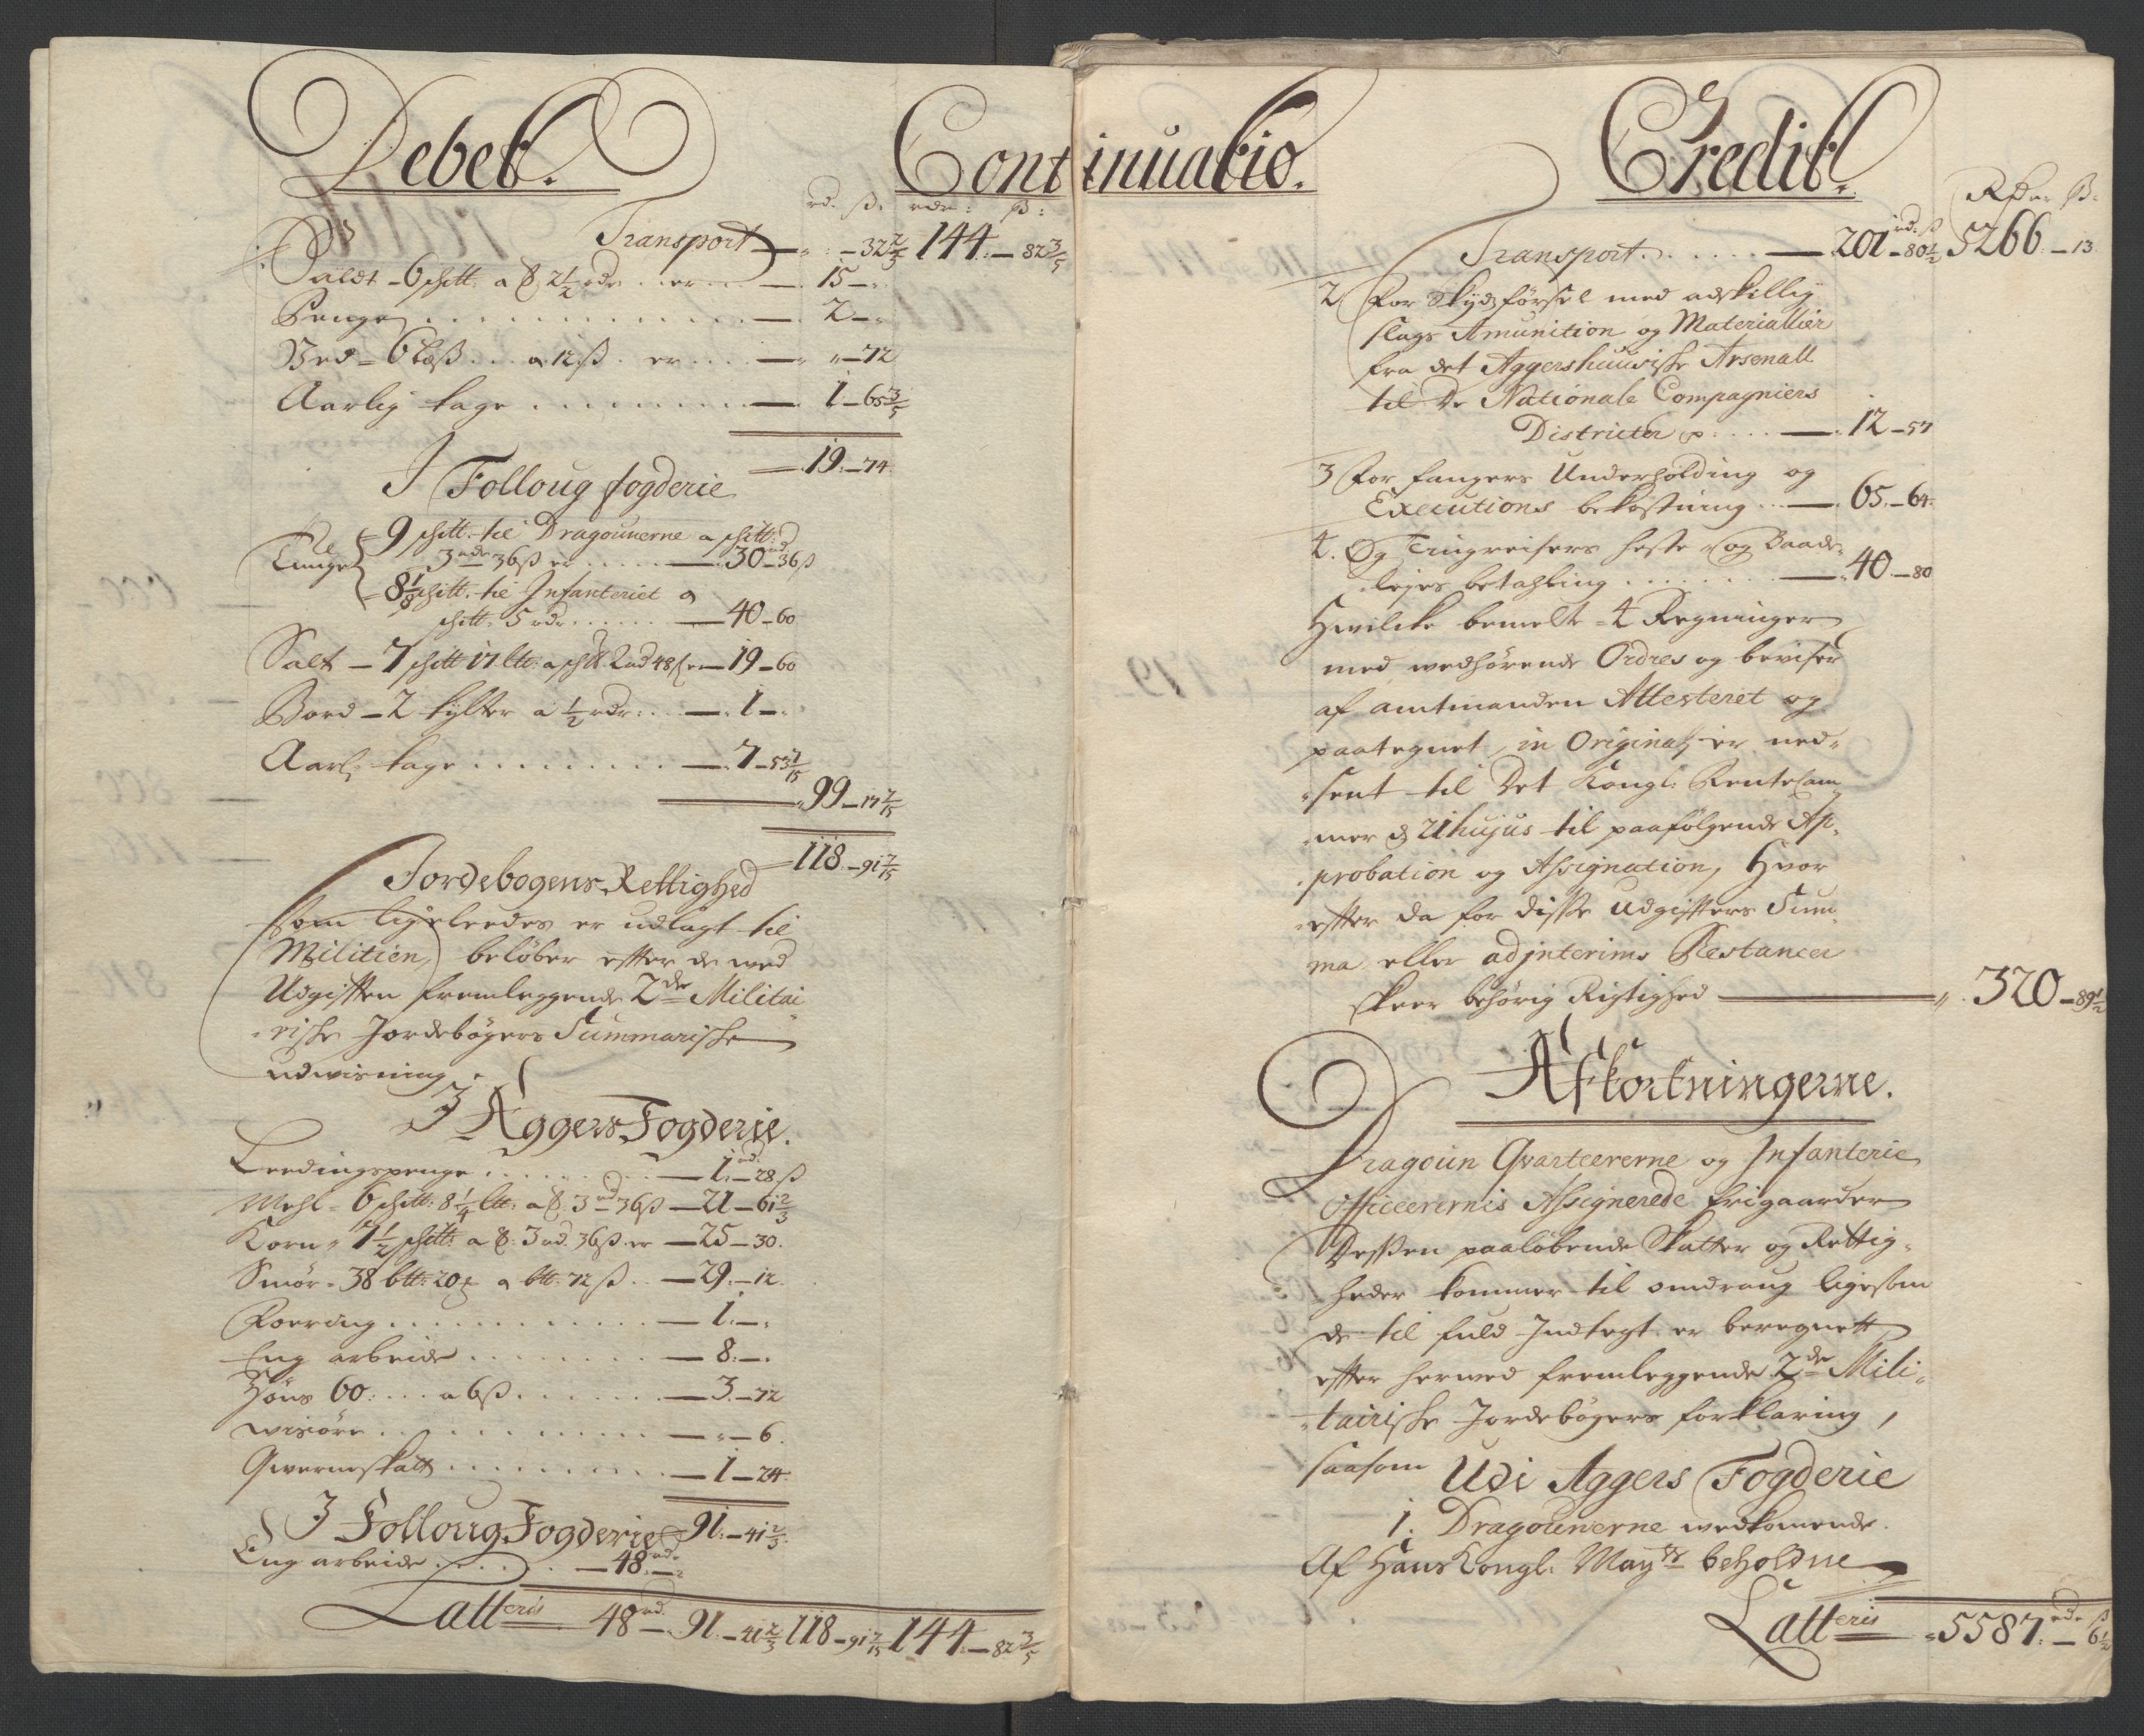 Debet. Continuatio.
rd. ß. rdr: ß:
Transport — " — 32 2/5 144. — 82 3/5
Saldt — 6 schtt: a 2 1/2 rdr .. er — 15 —
Penge . . . . — 2 — "
Ved — 6 læß .. a 12 ß. er .. — " — 72
Aarlig tage . . . . — 1 — 65 3/5
— 19. — 74
J Folloug fogderie
9 schtt. til Dragounerne a schtt:
3 rdr 36 ß er . . . — 30 rd — 36 ß
Tunge
8 1/8 schtt. til Infanteriet a
schtt: 5 rdr . . . . — 40 — 60
Salt — 7 schtt 17 ltt: a schtt 2 rd 48 ß er — 19 — 60
Bord — 2 tylter a 1/2 rdr: . . — 1 — "
Aarl: tage . . . . — 7 — 53 7/15
— 99 — 17 7/15
— 118. — 91 7/15
Jordebogens Rettighed
som ligeleedes er udlagt til
Militien, beløber effter de med
Udgifften fremleggende 2de Militai
rische Jordebøgers Summarische
udvisning.
J Aggers Fogderie.
Leedingspenge . . . . — 1. rd. — 28 ß
Mehl — 6 schtt: 8 1/4 ltt: a 3 rd 36 ß — 21 — 61 2/3
Korn " 7 1/2 schtt: a 3 rd. 36 ß er — 25 — 30.
Smør — 38 btt: 20 a btt: 72 ß . . — 29. — 12.
Foering . . . . — 1. — "
Eng arbeide . . . . — 8. — "
Høns 60: . . . a 6 ß . . . . — 3. — 72
wisøre . . . . — " — 6.
Qverneskatt . . . . — 1 — 24.
J Folloug Fogderie — 91. — 41 2/3.
Eng arbeide . . . . — 48 rd. — "
Latteris 48 rd. — 91. — 41 2/3 118 — 91 7/15 144. — 82 3/5
Credit.
Rdr. ß.
rd. ß
Transport. . . . . — 201 — 80 1/2 5266. — 13.
2 For Skydsførsel med adskillig
slags Amunition og Materiallier
fra det Aggershuusiske Arsenall
til De Nationale Compagniers
Districter p. . . . — 12 — 57
3 For fangers Underholding og
Executions bekostning . . . — 65. — 64.
4. Og Tingreisers heste og Baade
lejes betahling . . . . — 40. — 80
Hvilcke bemelte 4 Regninger
med vedhørende Ordres og beviser
af amtmanden Attesteret og
paategnet, in Originali er ned
sent til Det Kongl: Rentecam
mer d 21 hujus til paafølgende Ap
probation og Assignation, Hvor
effter da for disse Udgiffters Sum
ma eller adjnterims Restancer
skeer behørig Rigtighed — " 320 — 89 1/2
Afkortningerne.
Dragoun Qvarteererne og Infanterie
officeerernis Assignerede frigaarder
Dessen paaløbende Skatter og Rettig
heder kommer til omdrang ligesom
de til fuld Indtegt er beregnett
effter hermed fremleggende 2de Mili
tairische Jordebøgers forklaring,
saasom Udi Aggers Fogderie
1. Dragounerne wedkomende.
Af Hans Kongl. Mayts beholdne
Latteris 5587. rd. — 6 1/2 ß